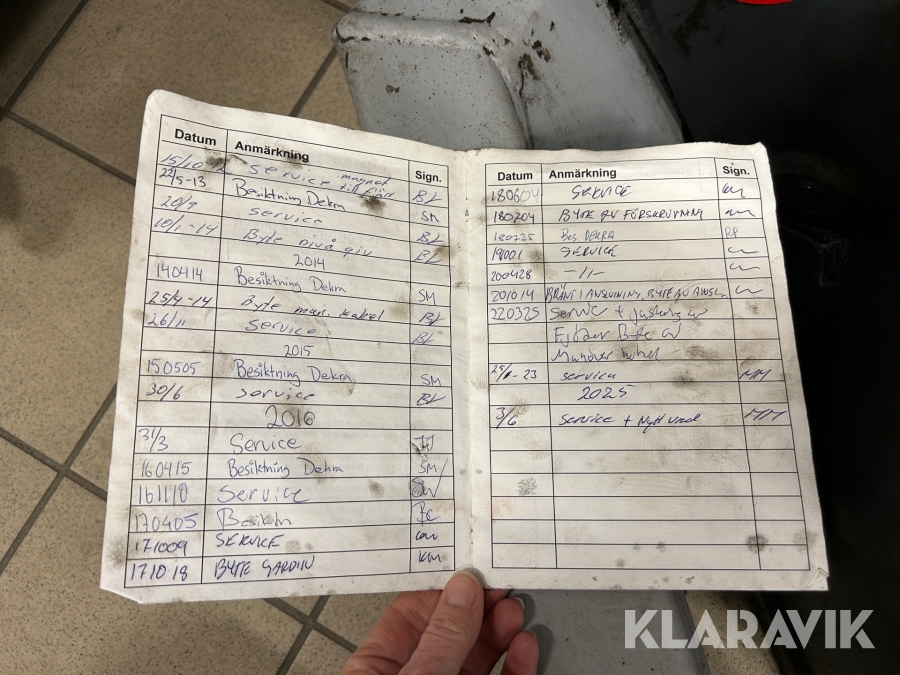 Datum Anmärkning Sign.
15/10 Service magnet till
22/5-13 Besiktning Dekra SM
20/9 Service BL
10/1-14 Byte nivå giv BL
2014
140414 Besiktning Dekra SM
25/4-14 Byte man. kabel BL
26/11 Service BL
2015
150505 Besiktning Dekra SM
30/6 Service BL
2016
31/3 Service
160415 Besiktning Dekra SM
161118 Service
170405
171009 SERVICE
171018 BYTE GARDIN
Datum Anmärkning Sign.
180604 SERVICE
180704 BYTE AV FÖRSKRUVNING
180725 Bes. DEKRA
SERVICE
200428 -//-
201014 BRÄNT I ANSLUTNING, BYTE AV
220325 Service + justering av
Byte av
Manöver
-23 service MM
2025
3/6 Service + Nytt MM
KLARAVIK